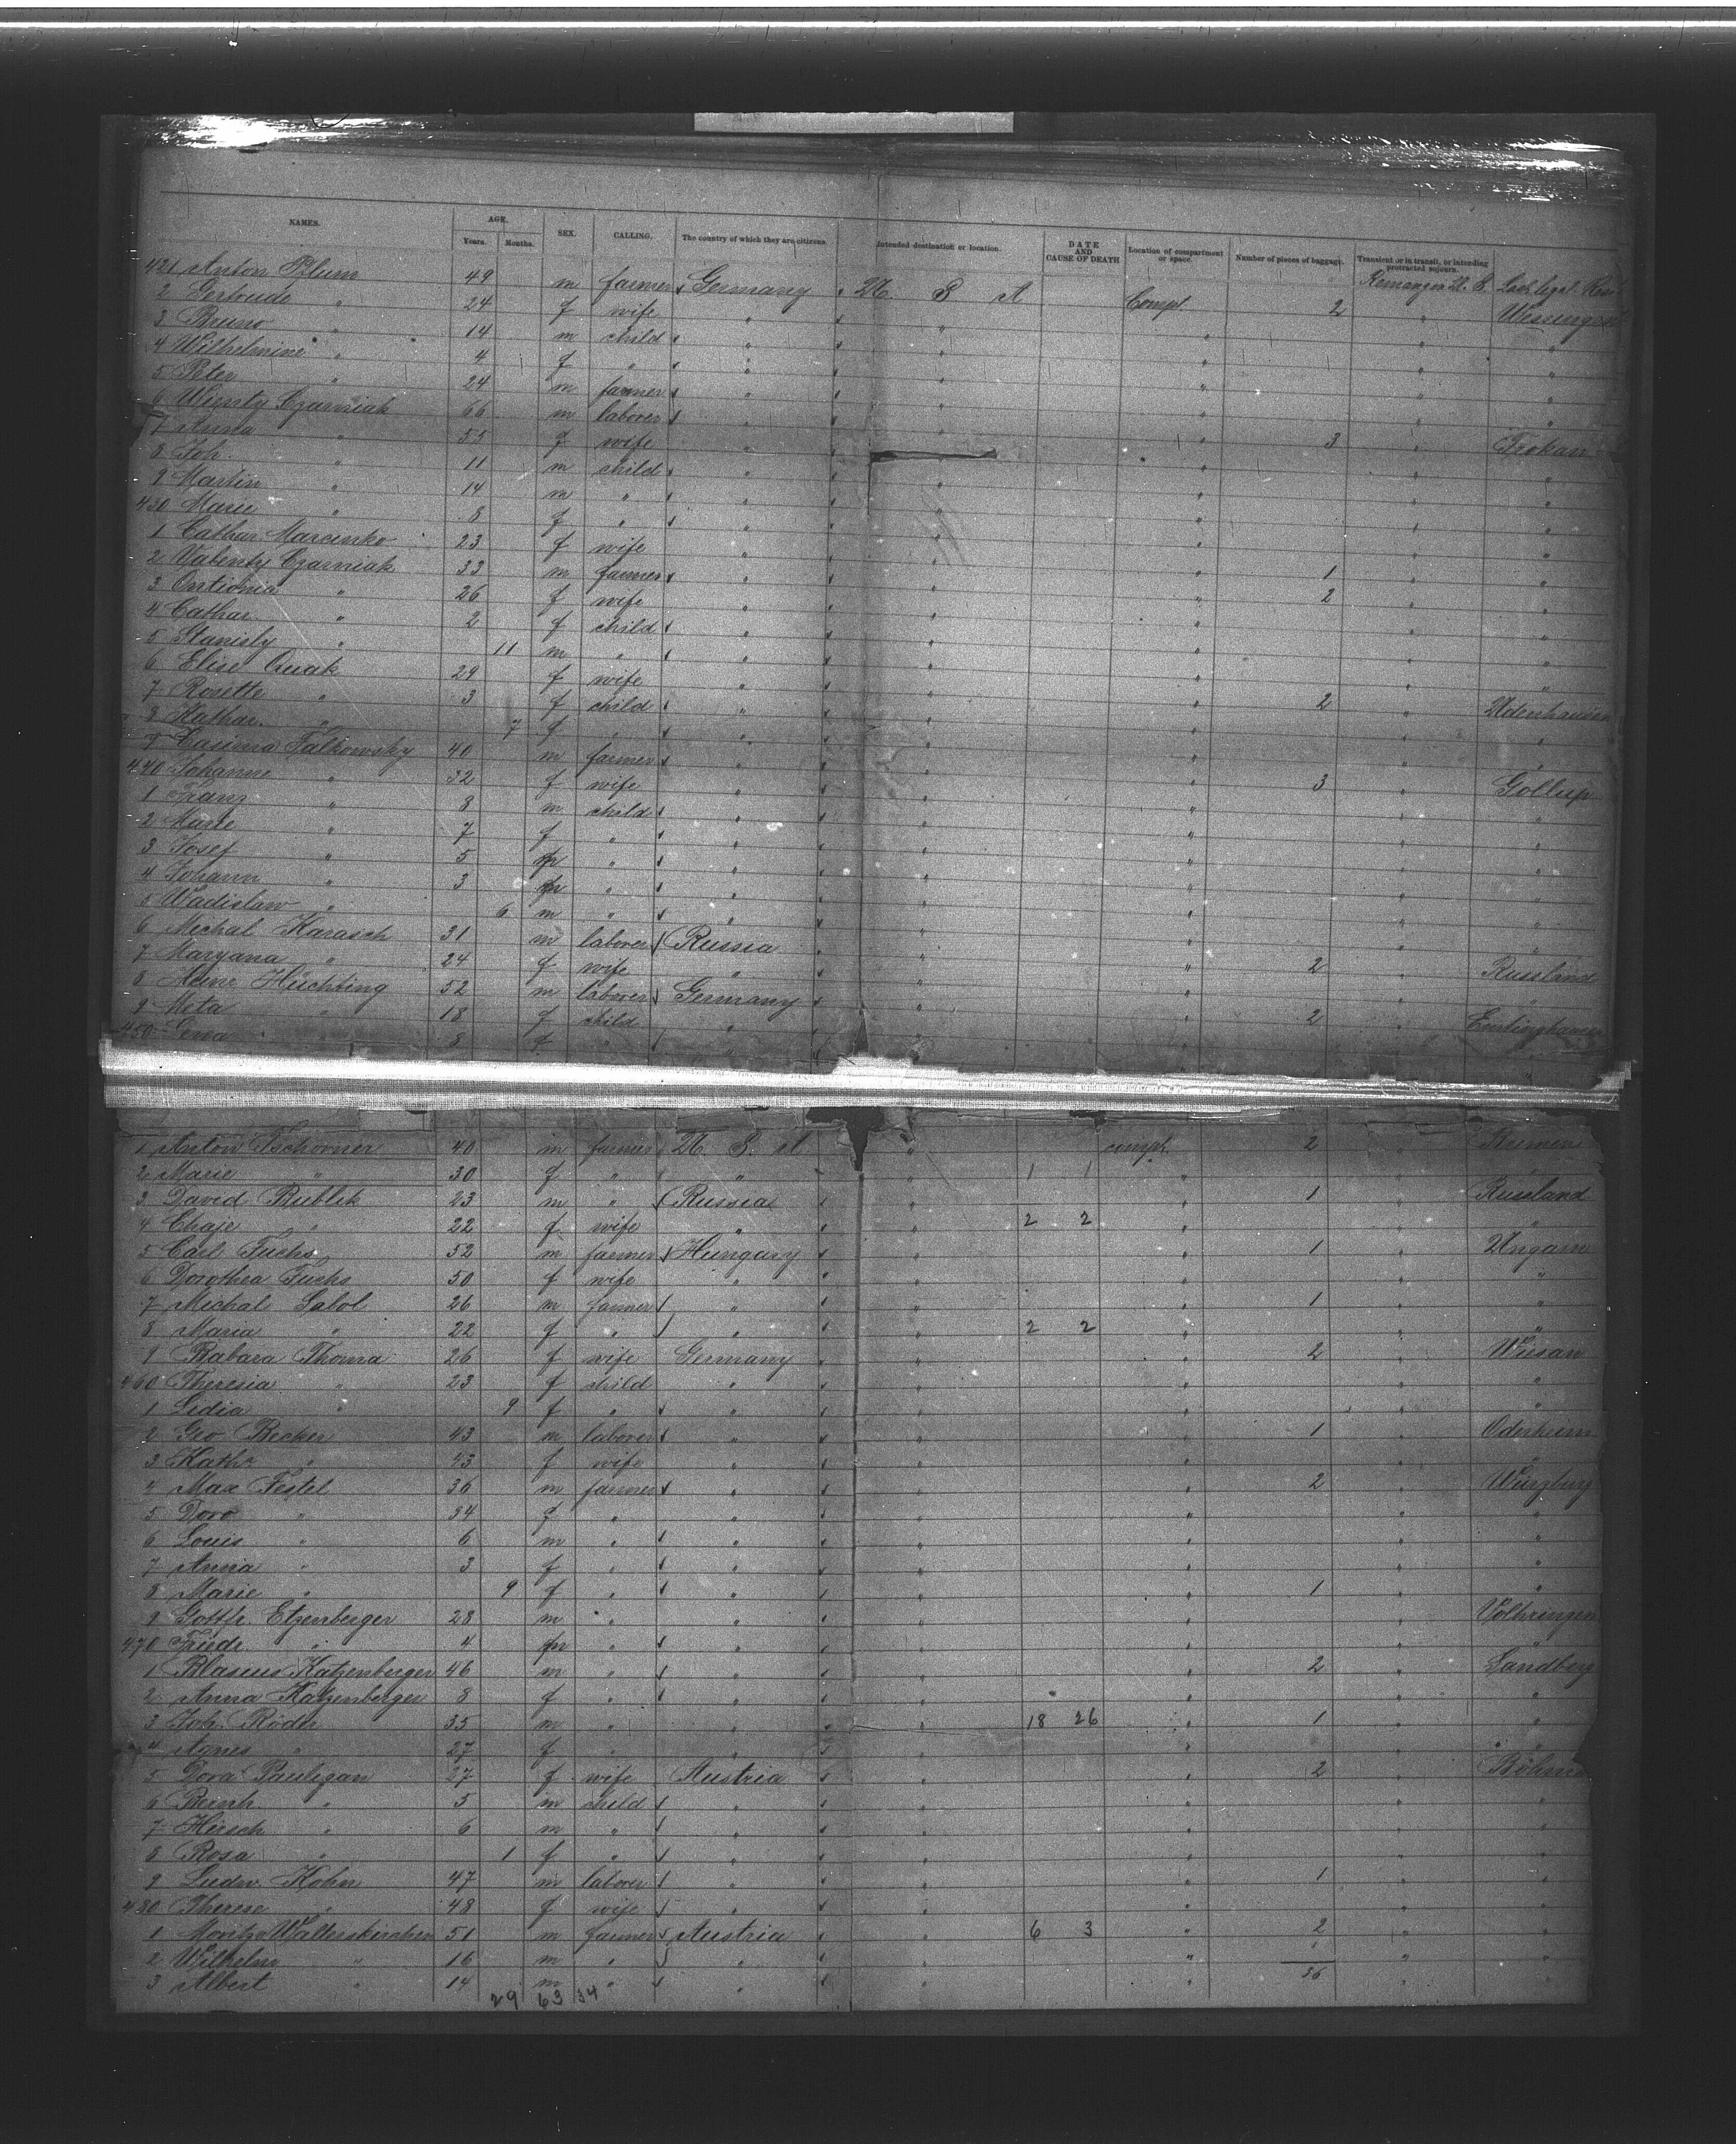 NAMES. AGE. Years. Months. SEX. CALLING. The country of which they are citizens. Intended destination or location. DATE AND CAUSE OF DEATH Location of compartment or space. Number of pieces of baggage. Transient or in transit, or intending protracted sojourn.
421 Anton Blum 49 m farmer Germany U. S. A Compl. 2 Last legal Resi
2 Gertrude " 24 f wife " " " "
3 Bruno " 14 m child " " " "
4 Wilhelmine " 4 f " " " " "
5 Peter " 24 m farmer " " " "
6 Wenty Czarniak 66 m laborer " " " 3 " Trokan
7 Anna " 55 f wife " " " " "
8 Joh. " 11 m child " " " " "
9 Martin " 14 m " " " " " "
430 Marie " 8 f " " " " " "
1 Cathar. Marcinko 23 f wife " " " 1 " "
2 Valenty Czarniak 33 m farmer " " " 2 " "
3 Ontionia " 26 f wife " " " " "
4 Cathar. " 2 f child " " " " "
5 Stanisly " 11 m " " " " " "
6 Elise Quak 29 f wife " " " 2 " Udenhausen
7 Rosette " 3 f child " " " " "
8 Kathar. " 7 f " " " " " "
9 Casimir Falkowsky 40 m farmer " " " 3 " Gollup
440 Johanne " 32 f wife " " " " "
1 Franz " 8 m child " " " " "
2 Marie " 7 f " " " " " "
3 Josef " 5 m " " " " " "
4 Johann " 3 m " " " " " "
5 Wadislaw " 6 m " " " " " "
6 Michal Karasch 31 m laborer Russia " " 2 " Russland
7 Maryana " 24 f wife " " " " "
8 Heinr. Hüchting 52 m laborer Germany " " 2 " Emtinghausen
9 Meta " 18 f child " " " " "
450 Gesa " 8 f " " " " "
1 Anton Tschorner 40 m farmer U. S. A " compl. 2 " Bremen
2 Marie " 30 f " " " 1 1 " " "
3 David Bublik 23 m " Russia " " 1 " Russland
4 Chaje " 22 f wife " " 2 2 " " "
5 Carl Fuchs 52 m farmer Hungary " " 1 " Ungarn
6 Dorothea Fuchs 50 f wife " " " " "
7 Michal Sabol 26 m farmer " " " 1 " "
8 Maria " 22 f " " " 2 2 " " "
9 Babara Thoma 26 f wife Germany " " 2 " Wiesau
460 Theresia " 23 f child " " " " "
1 Lidia " 9 f " " " " " "
2 Geo Becker 43 m laborer " " " 1 " Odenheim
3 Kathr. " 43 f wife " " " " "
4 Max Festel 36 m farmer " " " 2 " Würzburg
5 Doro " 34 f " " " " " "
6 Louis " 6 m " " " " " "
7 Anna " 3 f " " " " " "
8 Marie " 9 f " " " " 1 " "
9 Gottfr. Etzenberger 28 m " " " " " Völhringen
470 Friedr. " 4 m " " " " " "
1 Blasius Katzenberger 46 m " " " " 2 " Landberg
2 Anna Katzenberger 8 f " " " " " "
3 Joh. Röder 35 m " " " 18 26 " 1 " "
4 Agnes " 27 f " " " " " "
5 Dora Pauligan 27 f wife Austria " " 2 " Böhmen
6 Bernh. " 5 m child " " " " "
7 Hirsch " 6 m " " " " " "
8 Rosa " 1 f " " " " " "
9 Ludw. Kohn 47 m laborer " " " 1 " "
480 Therese " 48 f wife " " " " "
1 Moritz Walterskirchen 51 m farmer Austria " 6 3 " 2 " "
2 Wilhelm " 16 m " " " " " "
3 Albert " 14 m " " " " 36 " "
29 63 34